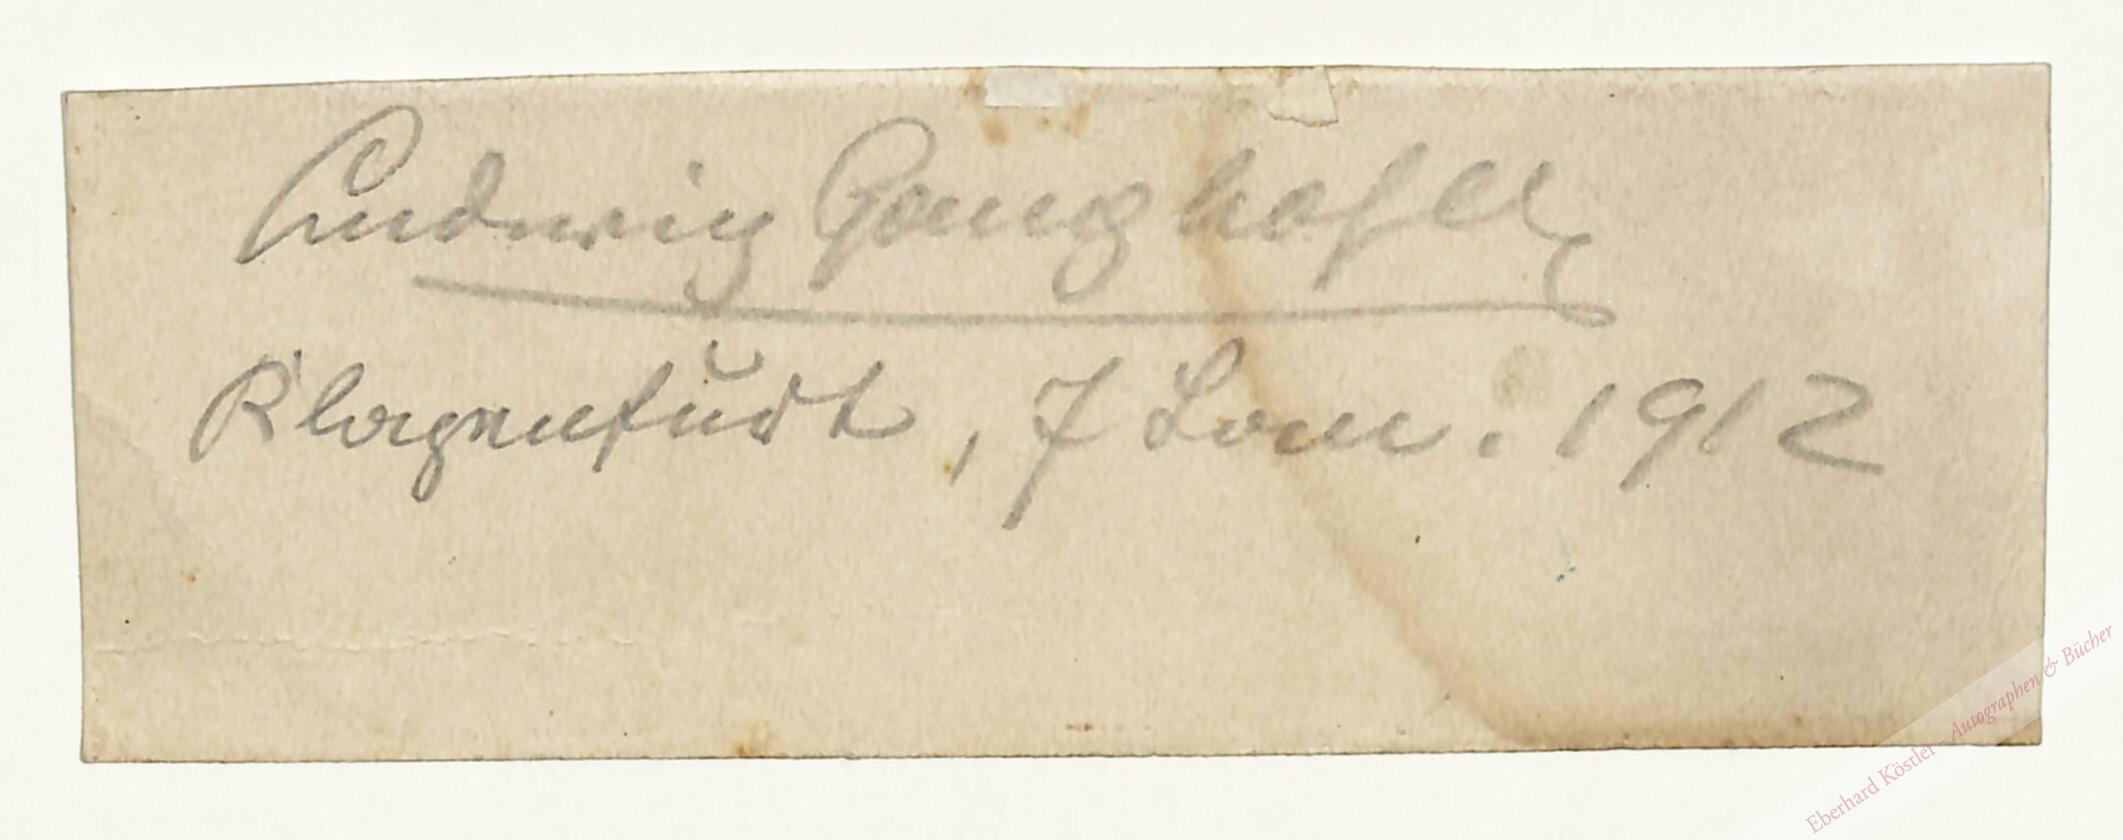 Ludwig Ganghofer
Klagenfurt, 7 Jan. 1912
Eberhard Köstler - Autographen & Bücher